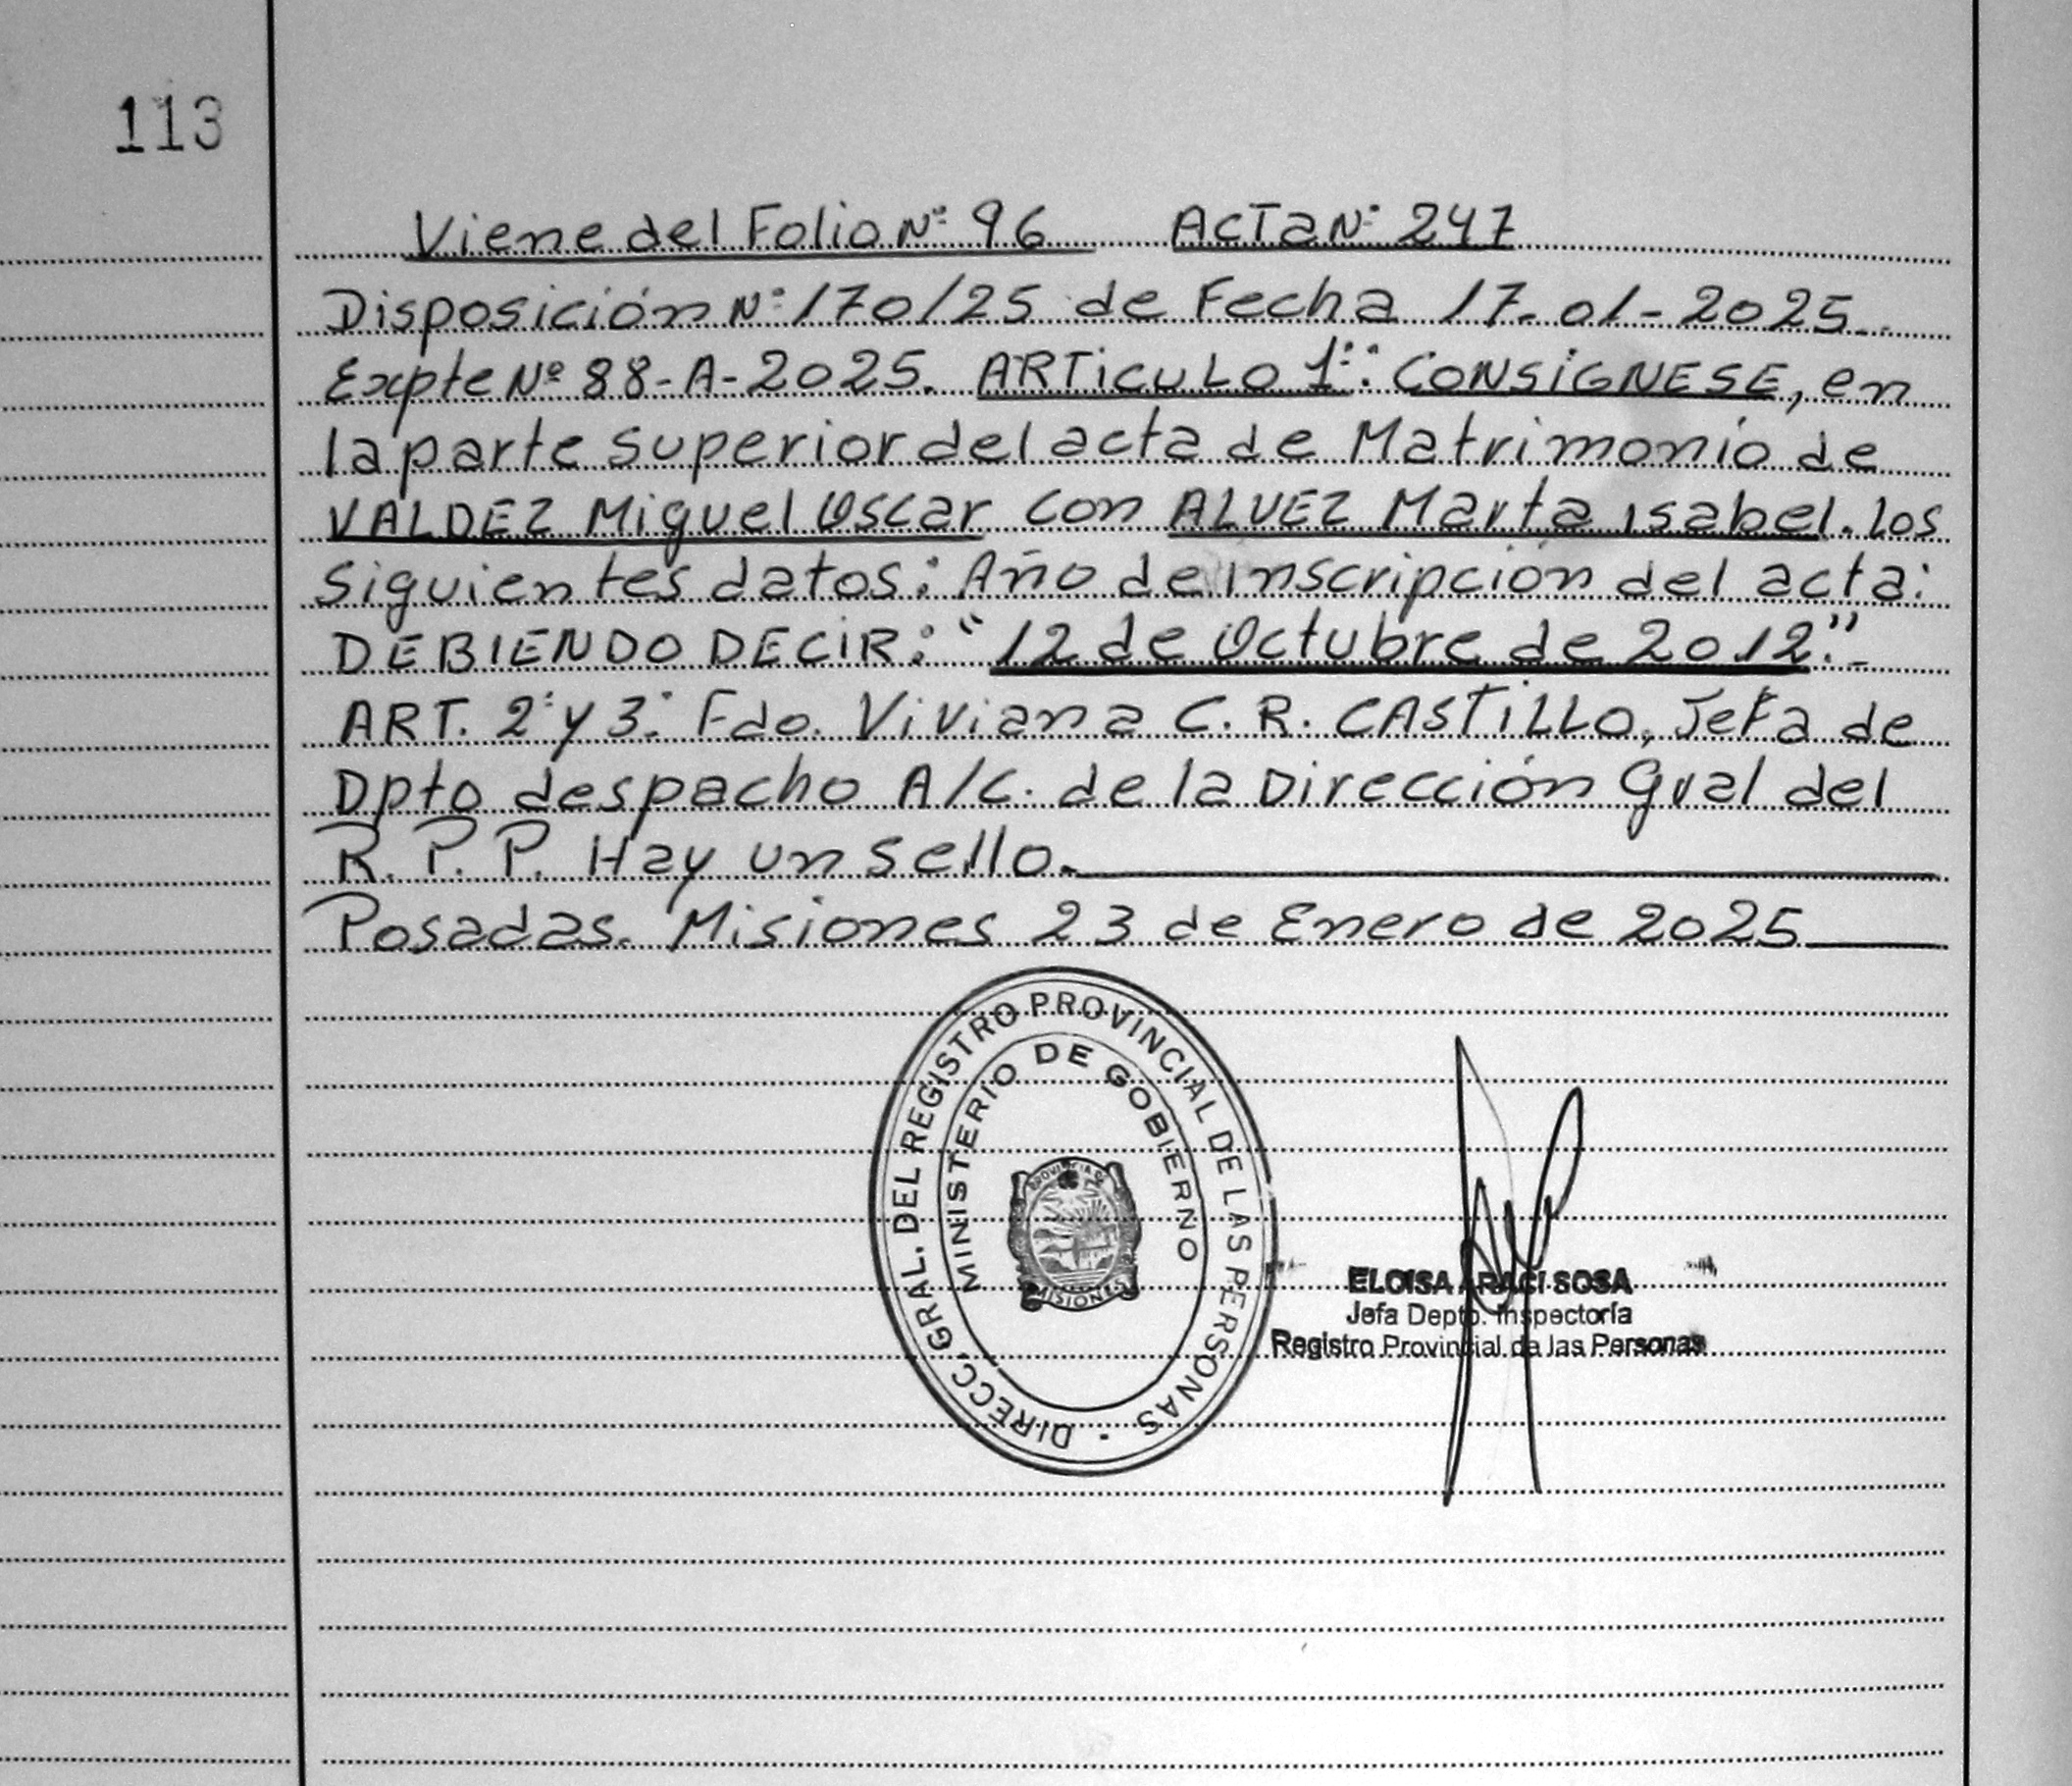 113
Viene del Folio Nº 96 ACTA Nº 247
Disposición Nº 170/25 de Fecha 17-01-2025.
Expte Nº 88-A-2025. ARTICULO 1º: CONSIGNESE, en
la parte superior del acta de Matrimonio de
VALDEZ Miguel Oscar con ALVEZ Marta Isabel. los
siguientes datos: Año de Inscripción del acta:
DEBIENDO DECIR: "12 de Octubre de 2012".-
ART. 2º y 3º Fdo. Viviana C. R. CASTILLO, Jefa de
Dpto despacho A/C. de la Dirección Gral del
R. P. P. Hay un sello.
Posadas. Misiones 23 de Enero de 2025
DIRECC. GRAL. DEL REGISTRO PROVINCIAL DE LAS PERSONAS
MINISTERIO DE GOBIERNO
PROVINCIA DE
MISIONES
ELOISA ARACI SOSA
Jefa Depto. Inspectoría
Registro Provincial de las Personas